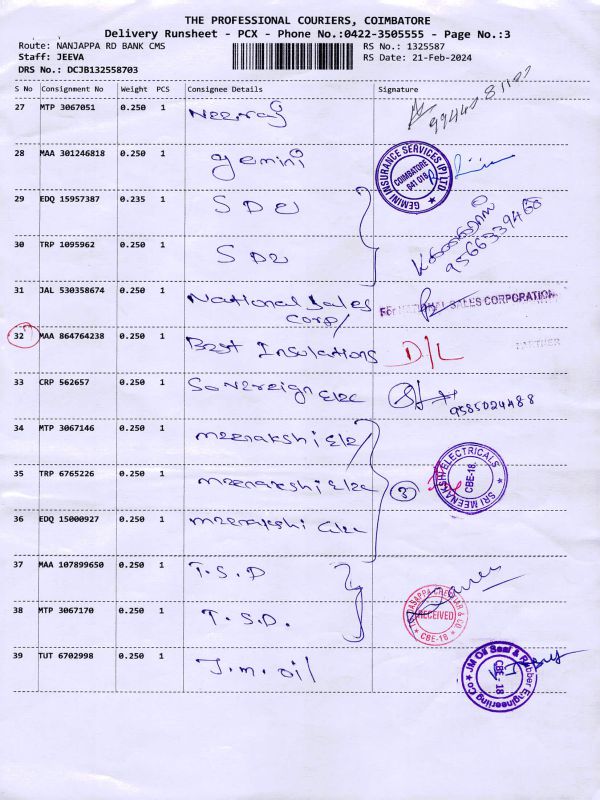 THE PROFESSIONAL COURIERS, COIMBATORE
Delivery Runsheet - PCX - Phone No.:0422-3505555 - Page No.:3
Route: NANJAPPA RD BANK CMS RS No.: 1325587
Staff: JEEVA RS Date: 21-Feb-2024
DRS No.: DCJB132558703
S No Consignment No Weight PCS Consignee Details Signature
27 MTP 3067051 0.250 1 Neeraj
28 MAA 301246818 0.250 1 gemini
GEMINI INSURANCE SERVICES (P) LTD. COIMBATORE 641 018
29 EDQ 15957387 0.235 1 S D E
30 TRP 1095962 0.250 1 S D E
31 JAL 530358674 0.250 1 National Sales
Corp/
For NATIONAL SALES CORPORATION
PARTNER
32 MAA 864764238 0.250 1 Best Insulations D/L
33 CRP 562657 0.250 1 Sovereign Elec 9585024488
34 MTP 3067146 0.250 1 meenakshi Ele/
35 TRP 6765226 0.250 1 meenakshi Elec 3
SRI MEENAKSHI ELECTRICALS CBE-18
36 EDQ 15000927 0.250 1 meenakshi Elec
37 MAA 107899650 0.250 1 T.S.D
38 MTP 3067170 0.250 1 T.S.D.
RECEIVED CBE-18
39 TUT 6702998 0.250 1 J.m.oil
JM Oil Seal & Rubber Engineering Co CBE-18